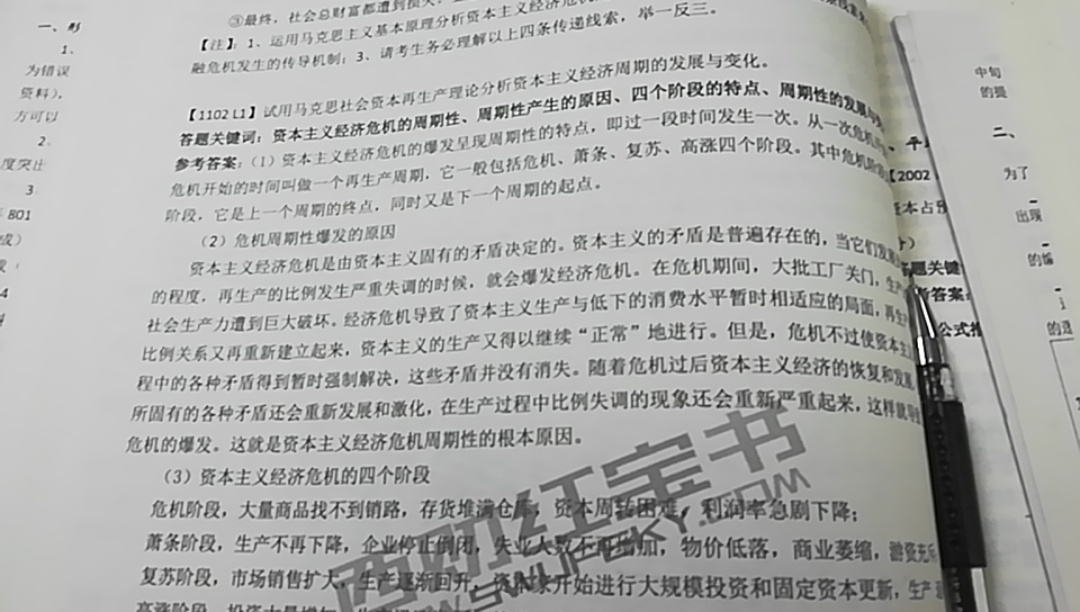 ③最终，社会总财富都遭到损失
【注】：1、运用马克思主义基本原理分析资本主义经济危机
融危机发生的传导机制；3、请考生务必理解以上四条传递线索，举一反三。
【1102 L1】试用马克思社会资本再生产理论分析资本主义经济周期的发展与变化。
答题关键词：资本主义经济危机的周期性、周期性产生的原因、四个阶段的特点、周期性的发展与
参考答案：（1）资本主义经济危机的爆发呈现周期性的特点，即过一段时间发生一次。从一次危机
危机开始的时间叫做一个再生产周期，它一般包括危机、萧条、复苏、高涨四个阶段。其中危机阶段
阶段，它是上一个周期的终点，同时又是下一个周期的起点。
（2）危机周期性爆发的原因
资本主义经济危机是由资本主义固有的矛盾决定的。资本主义的矛盾是普遍存在的，当它们发展
的程度，再生产的比例发生严重失调的时候，就会爆发经济危机。在危机期间，大批工厂关门，生产
社会生产力遭到巨大破坏。经济危机导致了资本主义生产与低下的消费水平暂时相适应的局面，再生
比例关系又再重新建立起来，资本主义的生产又得以继续“正常”地进行。但是，危机不过使资本主
程中的各种矛盾得到暂时强制解决，这些矛盾并没有消失。随着危机过后资本主义经济的恢复和发展
所固有的各种矛盾还会重新发展和激化，在生产过程中比例失调的现象还会重新严重起来，这样就导
危机的爆发。这就是资本主义经济危机周期性的根本原因。
（3）资本主义经济危机的四个阶段
危机阶段，大量商品找不到销路，存货堆满仓库，资本周转困难，利润率急剧下降；
萧条阶段，生产不再下降，企业停止倒闭，失业人数不再增加，物价低落，商业萎缩，游资充斥
复苏阶段，市场销售扩大，生产逐渐回升，资本家开始进行大规模投资和固定资本更新，生产
高涨阶段，投资大量增加
西财红宝书
一、形
1、
为错误
资料）。
方可以
2.
度突出
3.
801
成）
4
【2002
资本占
答题关键
答案
公式推
中旬
的提
二、
为了
出现
的编